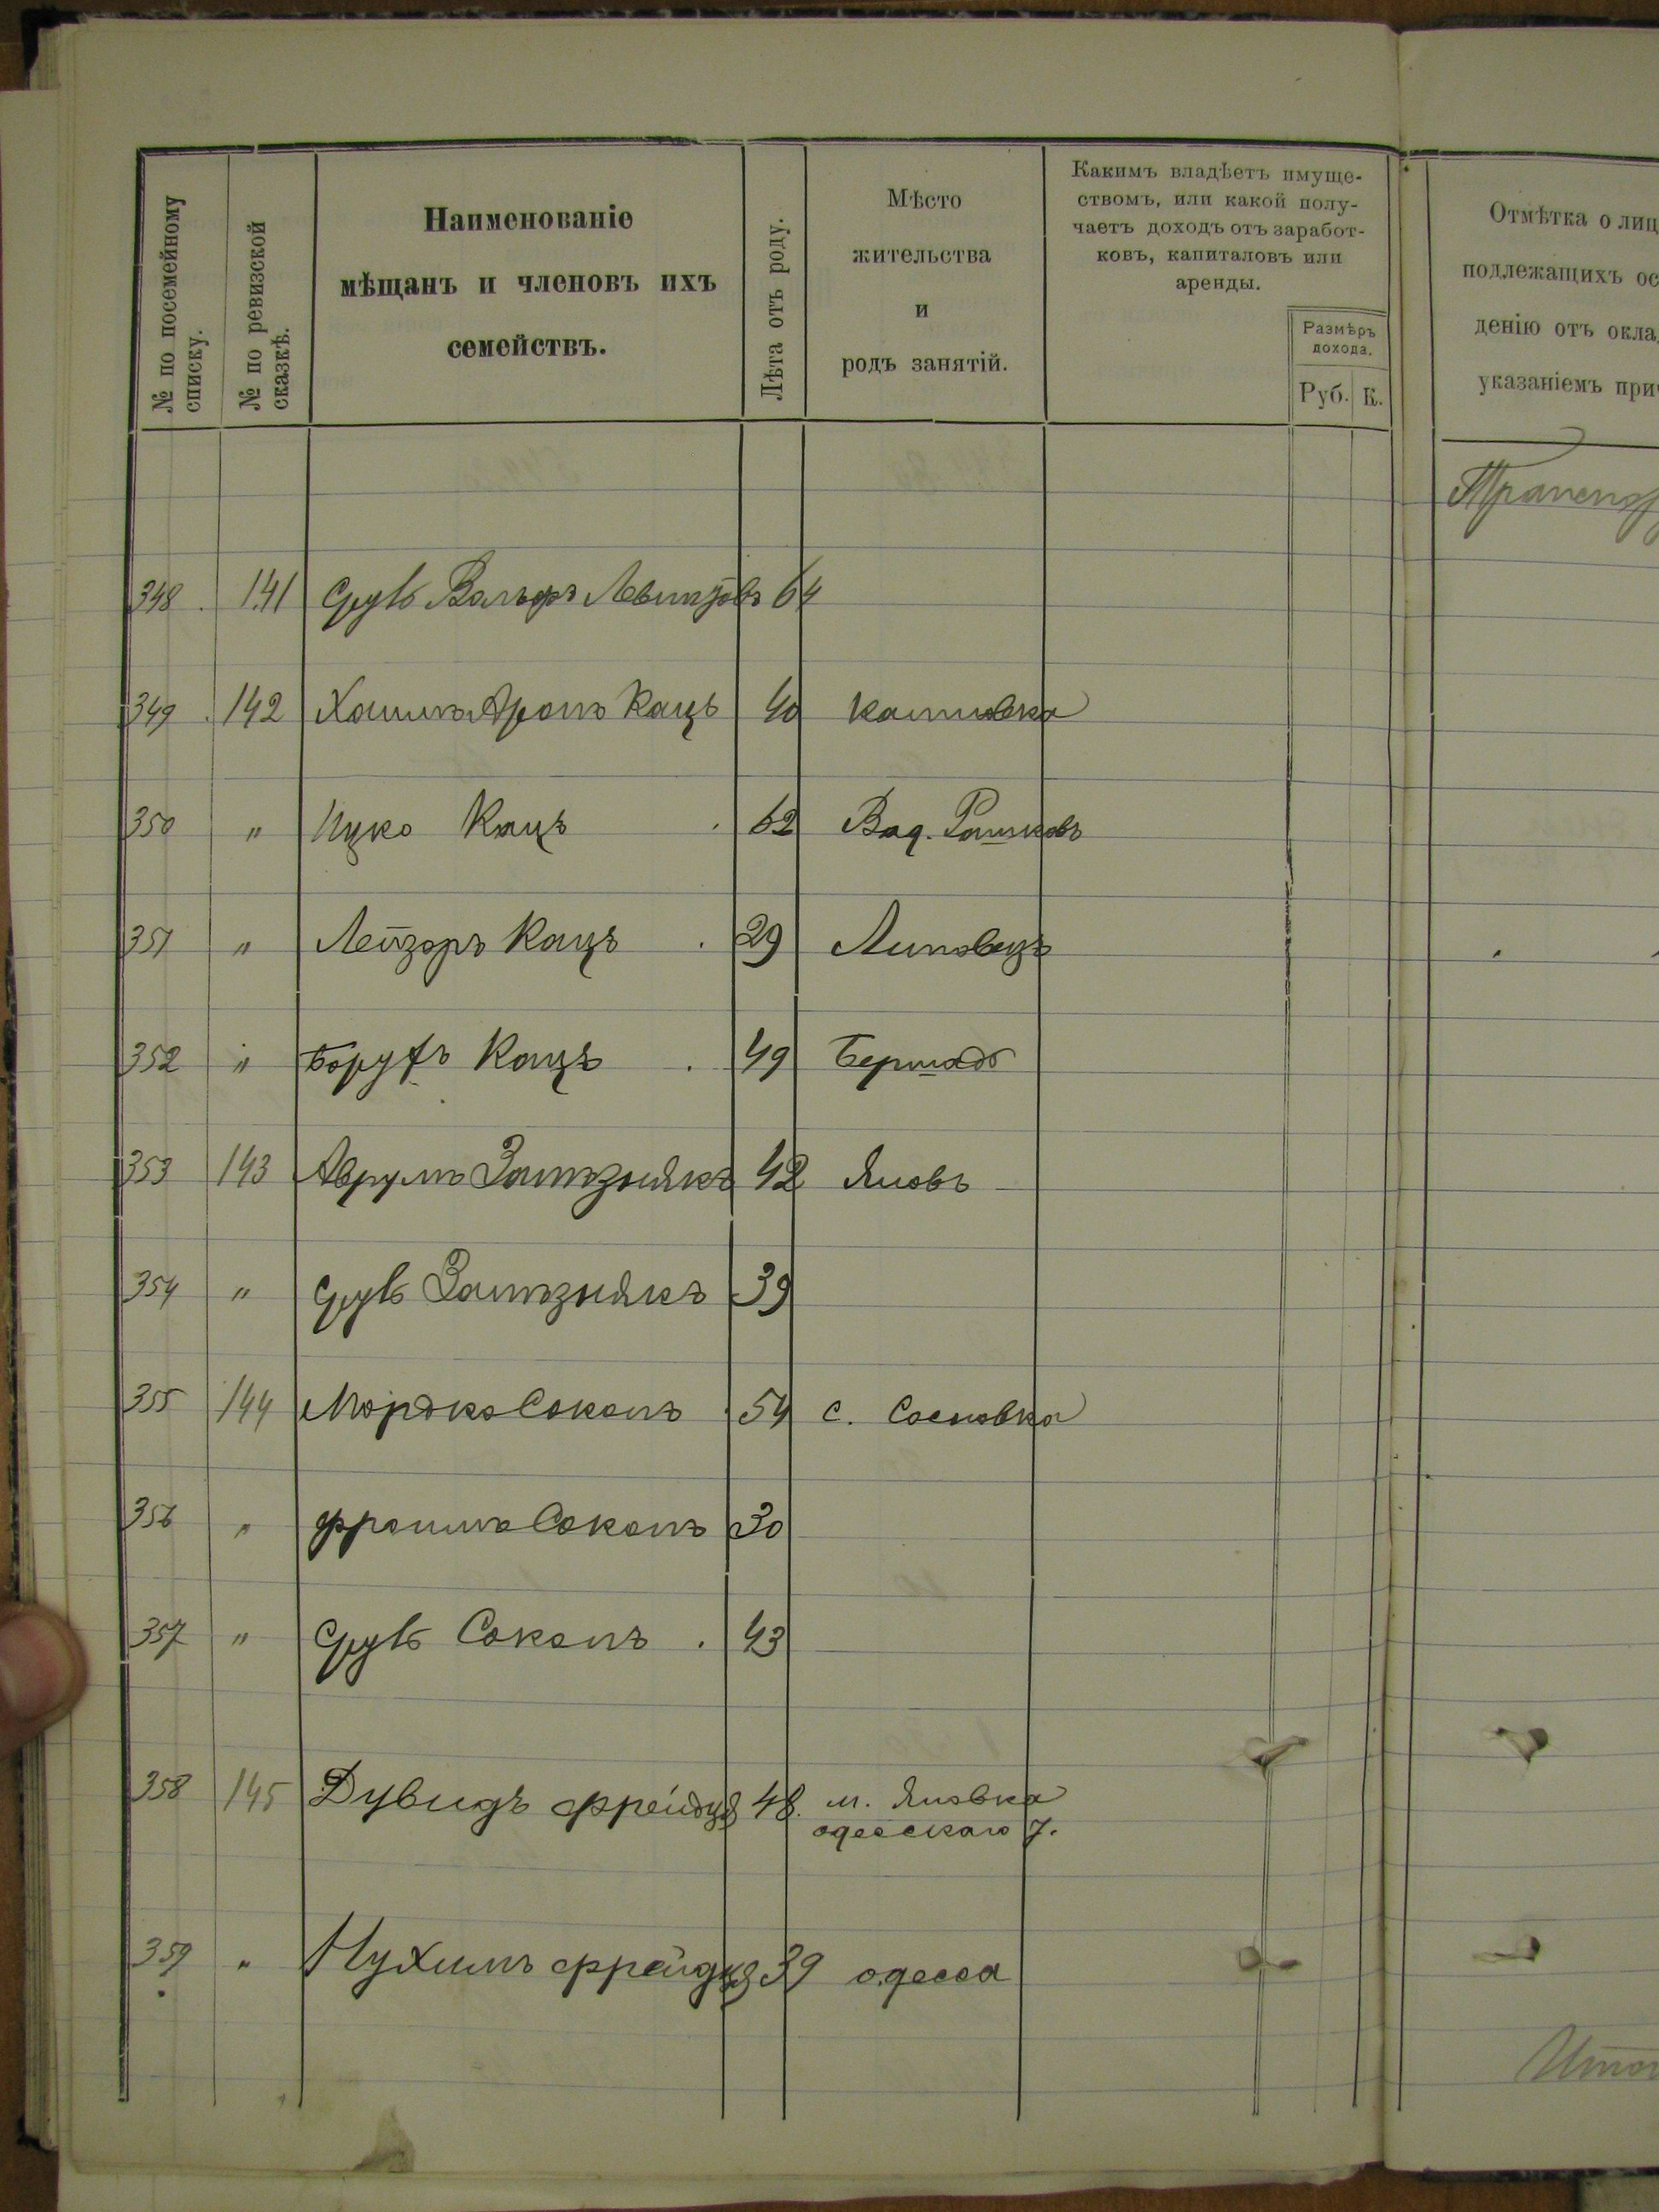 № по посемейному
списку.
№ по ревизской
сказкѣ.
Наименованіе
мѣщанъ и членовъ ихъ
семействъ.
Лѣта отъ роду.
Мѣсто
жительства
и
родъ занятій.
Какимъ владѣетъ имуще-
ствомъ, или какой полу-
чаетъ доходъ отъ заработ-
ковъ, капиталовъ или
аренды.
Размѣръ
дохода.
Руб. К.
Отмѣтка о лиц
подлежащихъ ос
денію отъ окла
указаніемъ при
348. 141 Сруль Вальфъ 64
349. 142 Хаимъ Аронъ Кацъ 40
350 " Ицко Кацъ 62 Вад. Рашковъ
351 " Лейзоръ Кацъ 29 Липовецъ
352 " Борухъ Кацъ 49 Бершадь
353 143 Аврумъ 42 Яновъ
354 " Сруль 39
355 144 Мордко Соколъ 54 с. Сосновка
356 " Фроимъ Соколъ 30
357 " Сруль Соколъ 43
358 145 Дувидъ 48. м. Яновка
одесскаго у.
359 " Нухимъ 39 одесса